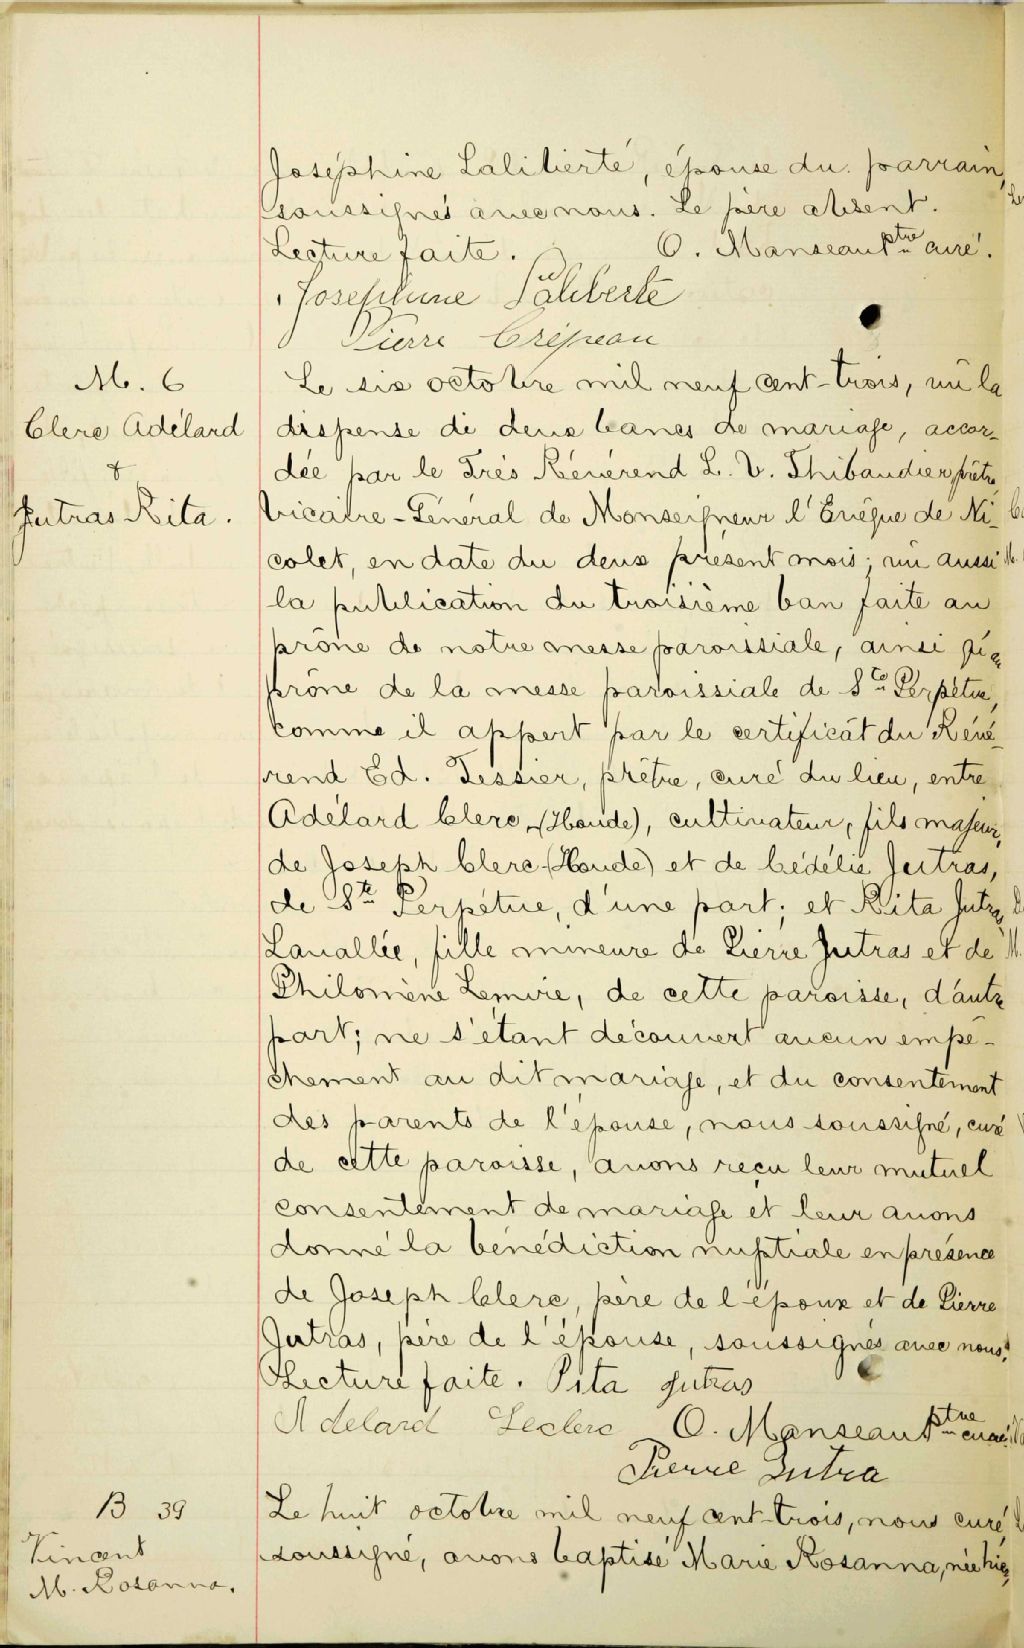 Joséphine Laliberté, épouse du parrain,
soussignés avec nous. Le père absent.
Lecture faite. O. Manseau ptre curé.
Josephine Laliberté
Pierre Crépeau
M. 6
Clerc Adélard
&
Jutras Rita.
Le six octobre mil neuf cent-trois, vu la
dispense de deux bancs de mariage, accor-
dée par le Très Révérend L. V. Thibaudier prêtre
Vicaire-Général de Monseigneur l'Evêque de Ni-
colet, en date du deux présent mois; vu aussi
la publication du troisième ban faite au
prône de notre messe paroissiale, ainsi qu'au
prône de la messe paroissiale de Ste Perpétue,
comme il appert par le certificat du Révé-
rend Ed. Tessier, prêtre, curé du lieu, entre
Adélard Clerc (Houde), cultivateur, fils majeur,
de Joseph Clerc (Houde) et de Cédélie Jutras,
de Ste Perpétue, d'une part; et Rita Jutras
Lavallée, fille mineure de Pierre Jutras et de
Philomène Lemire, de cette paroisse, d'autre
part; ne s'étant découvert aucun empê-
chement au dit mariage, et du consentement
des parents de l'épouse, nous soussigné, curé
de cette paroisse, avons reçu leur mutuel
consentement de mariage et leur avons
donné la bénédiction nuptiale en présence
de Joseph Clerc, père de l'époux et de Pierre
Jutras, père de l'épouse, soussignés avec nous.
Lecture faite. Rita Jutras
Adelard Leclerc O. Manseau ptre curé
Pierre Jutra
B 39
Vincent
M. Rosanna.
Le huit octobre mil neuf cent-trois, nous curé
soussigné, avons baptisé Marie Rosanna, née hier,